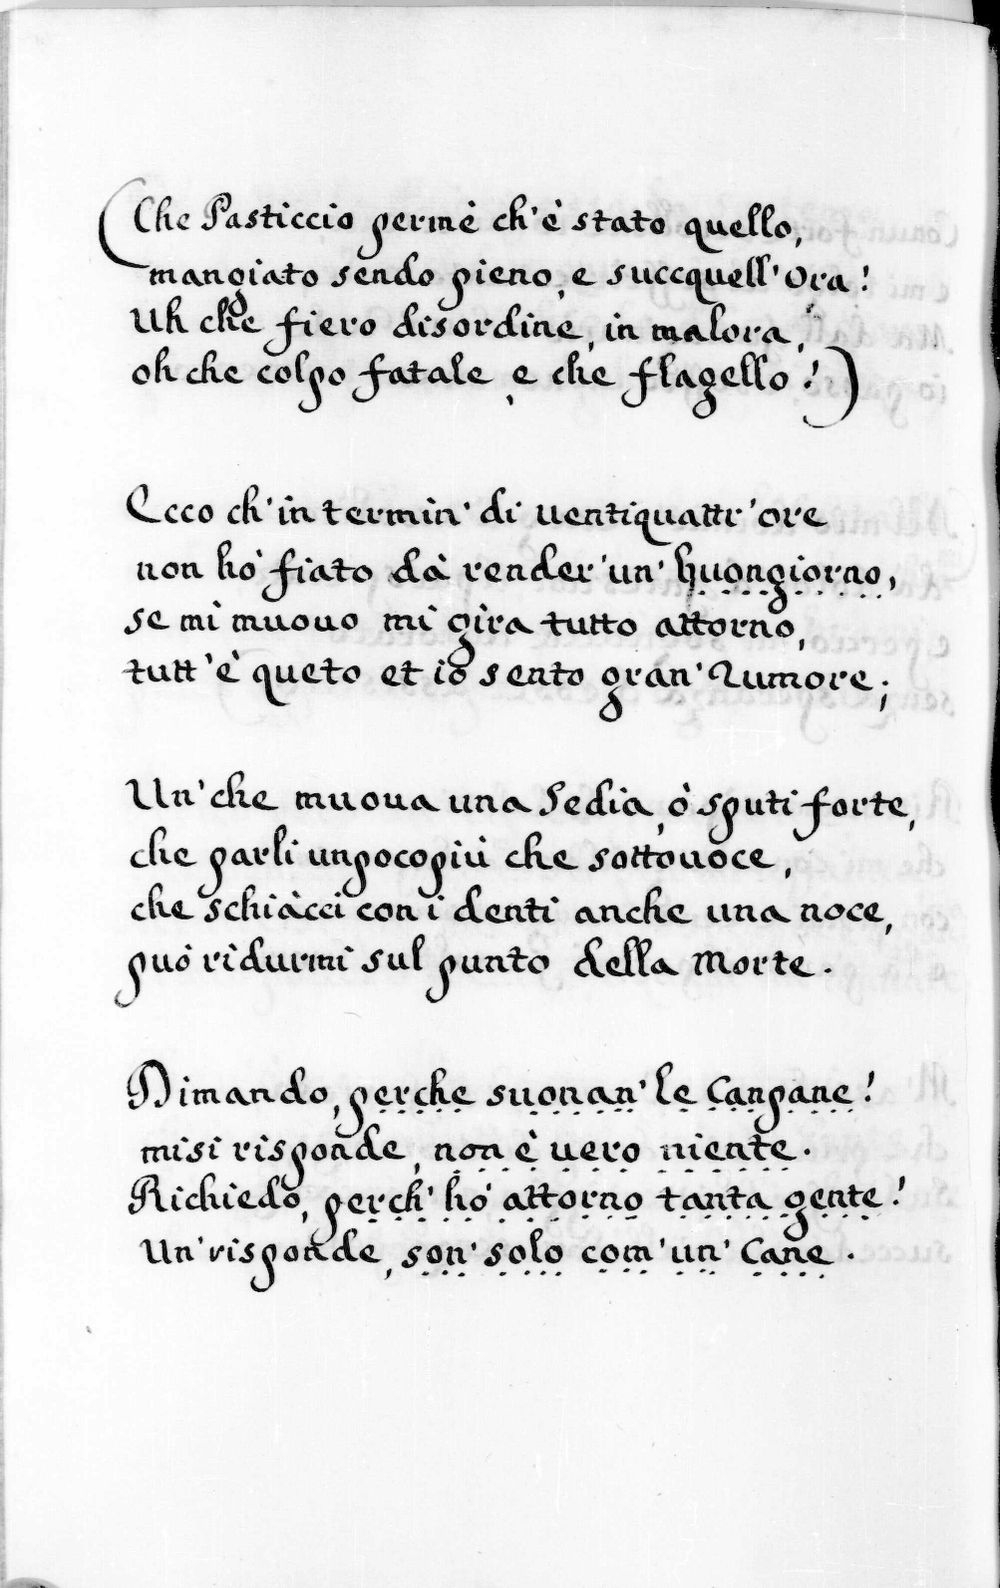 (Che Pasticcio permè ch'è stato quello,
mangiato sendo pieno, e succquell'Ora!
Uh che fiero disordine, in malora,
oh che colpo fatale, e che flagello!)
Ecco ch'in termin' di uentiquattr'ore
non hò fiato dà render'un' buongiorno,
se mi muouo mi gira tutto attorno,
tutt'è queto et io sento gran' Rumore;
Un'che muoua una Sedia, ò sputi forte,
che parli unpocopiù che sottouoce,
che schiàcci con i denti anche una noce,
può ridurmi sul punto della Morte.
Dimando, perche suonan' le Canpane!
misi risponde, non è uero niente.
Richiedo, perch' hò attorno tanta gente!
Un'risponde, son' solo com'un' Cane.